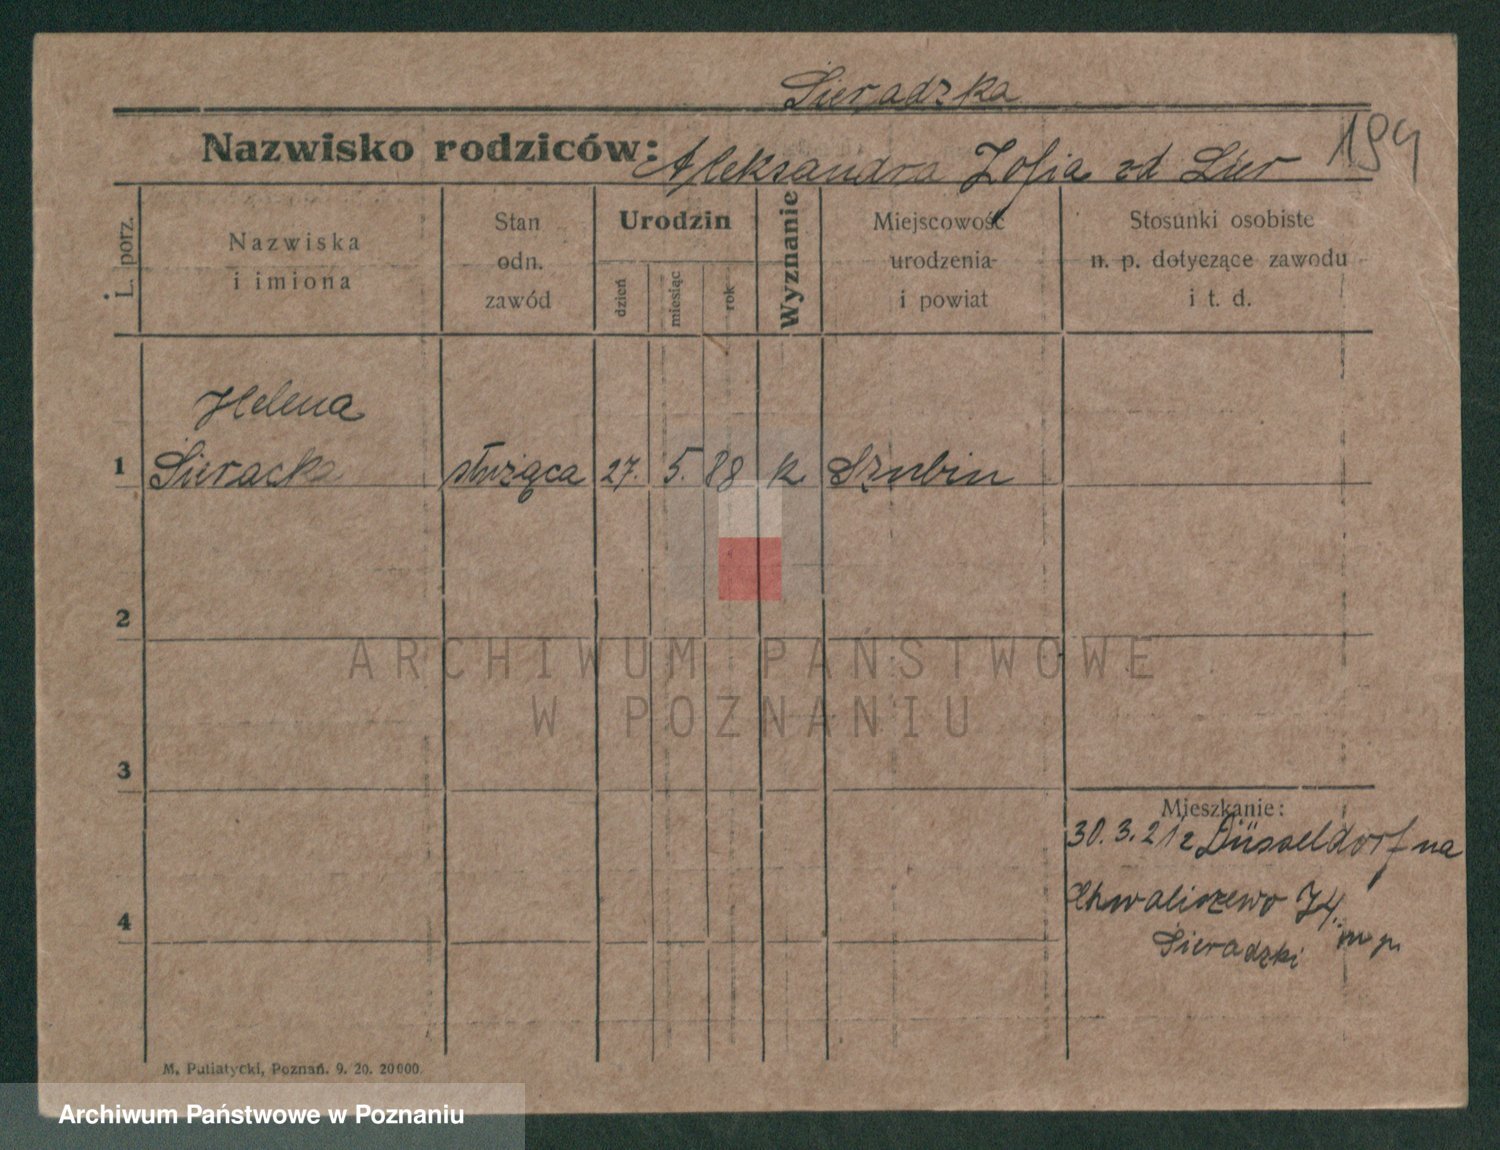 Sieradzka
Nazwisko rodziców: Aleksandra Zofia od Sier
L. porz.
Nazwiska
i imiona
Stan
odn.
zawód
Urodzin
dzień
miesiąc
rok
Wyznanie
Miejscowość
urodzenia
i powiat
Stosunki osobiste
n. p. dotyczące zawodu
i t. d.
Helena
1 Sieracka służąca 27. 5. 88 k. Szubin
2
ARCHIWUM PAŃSTWOWE
W POZNANIU
3
Mieszkanie:
30.3.21 z Düsseldorf na
Chwaliszewo 74.
Sieradzki
4
M. Putiatycki, Poznań. 9. 20. 20000
Archiwum Państwowe w Poznaniu